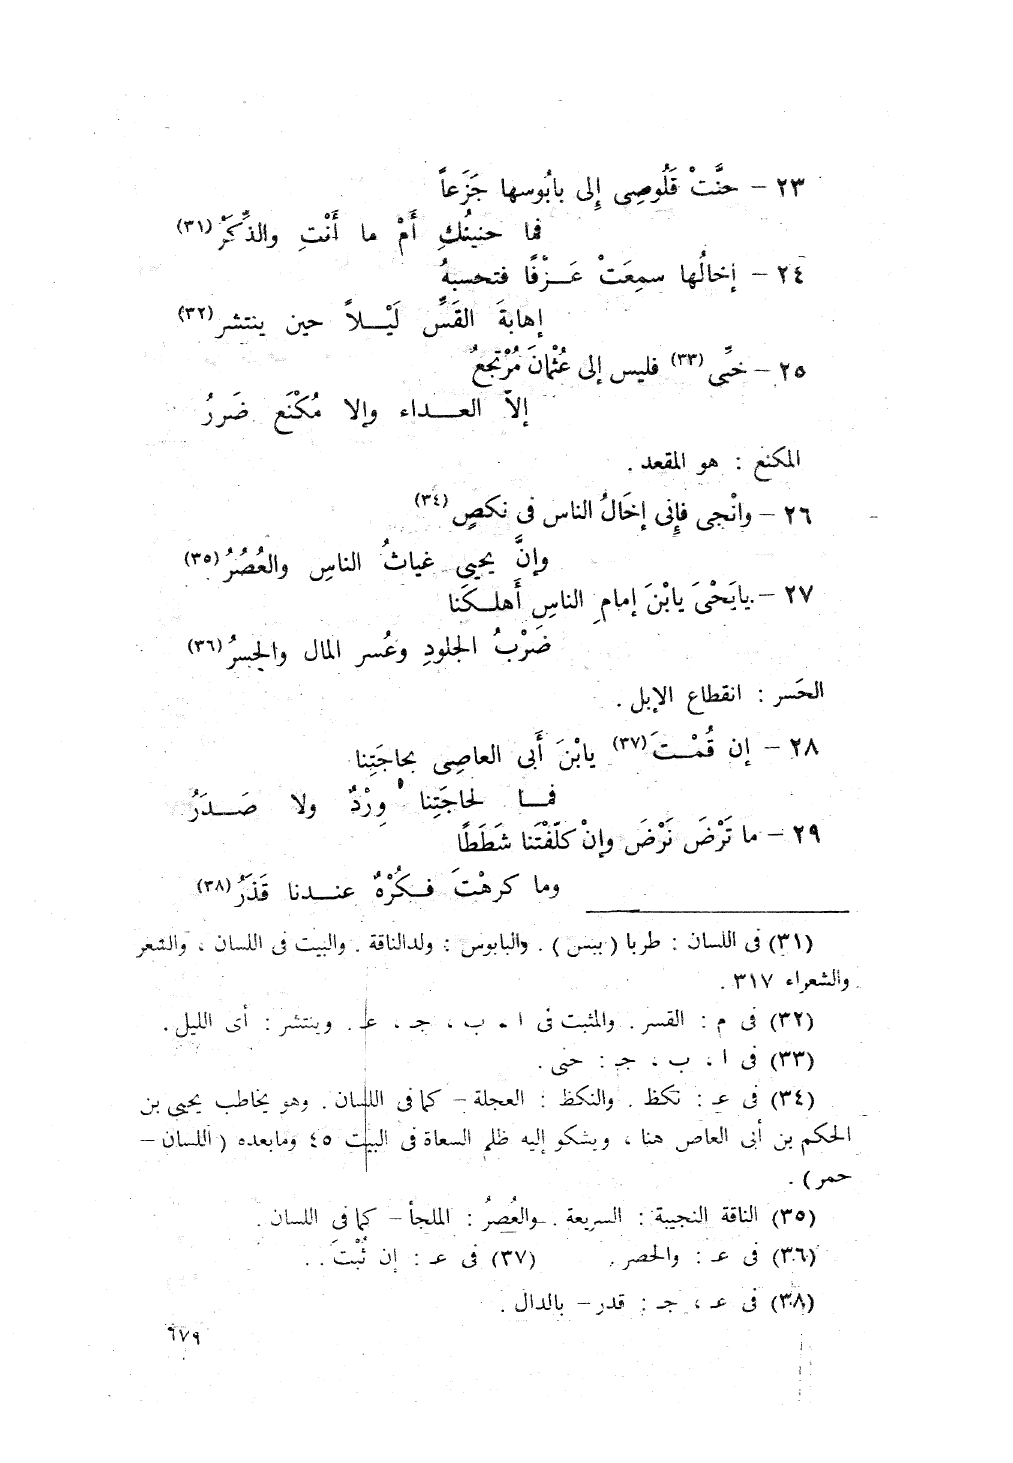 ٢٣ – حنَّتْ قَلُوصِى إِلى بابُوسها جَزَعاً
فما حنينُكِ أَمْ ما أَنْتِ والذِّكَرُ (٣١)
٢٤ – إخالُها سمِعَتْ عَـزْفًا فتحسبهُ
إهابةَ القَسِّ لَيْـلاً حين ينتشر (٣٢)
٢٥ – خبِّى (٣٣) فليس إلى عُثْمانَ مُرْتَجعُ
إلاّ العـداء وإلا مُكْنَع ضَررُ
المكنع : هو المقعد .
٢٦ – وانْجى فإِنى إخَالُ الناس فى نكصٍ (٣٤)
وإنَّ يحيى غياثُ الناسِ والعُصُرُ (٣٥)
٢٧ – يايَحْىَ يابْنَ إمامِ الناسِ أَهلـكَنا
ضَرْبُ الجلودِ وعُسر المال والحسرُ (٣٦)
الحَسر : انقطاع الإبل .
٢٨ – إن قُمْـتَ (٣٧) يابْنَ أَبى العاصِى بحاجَتِنا
فمـا لحاجَتِنا وِرْدٌ ولا صَـدَرُ
٢٩ – ما تَرْضَ نَرْضَ وإنْ كلّفْتَنا شَطَطًا
وما كرهْتَ فـكُرْهٌ عنـدنا قَذَرُ (٣٨)
(٣١) فى اللسان : طربا ( ببس ) . والبابوس : ولدالناقة . والبيت فى اللسان ، والشعر
والشعراء ٣١٧ .
(٣٢) فى م : القسر . والمثبت فى ا ، ب ، جـ ، عـ . وينتشر : أى الليل .
(٣٣) فى ا ، ب ، جـ : حنى .
(٣٤) فى عـ : نكظ . والنكظ : العجلة – كما فى اللسان . وهو يخاطب يحيى بن
الحكم بن أبى العاص هنا ، ويشكو إليه ظلم السعاة فى البيت ٤٥ ومابعده ( اللسان –
حمر ) .
(٣٥) الناقة النجيبة : السريعة . والعُصرُ : الملجأ – كما فى اللسان .
(٣٦) فى عـ : والحصر . (٣٧) فى عـ : إن نُبْتَ . .
(٣٨) فى عـ ، جـ : قدر – بالدال .
٦٧٩